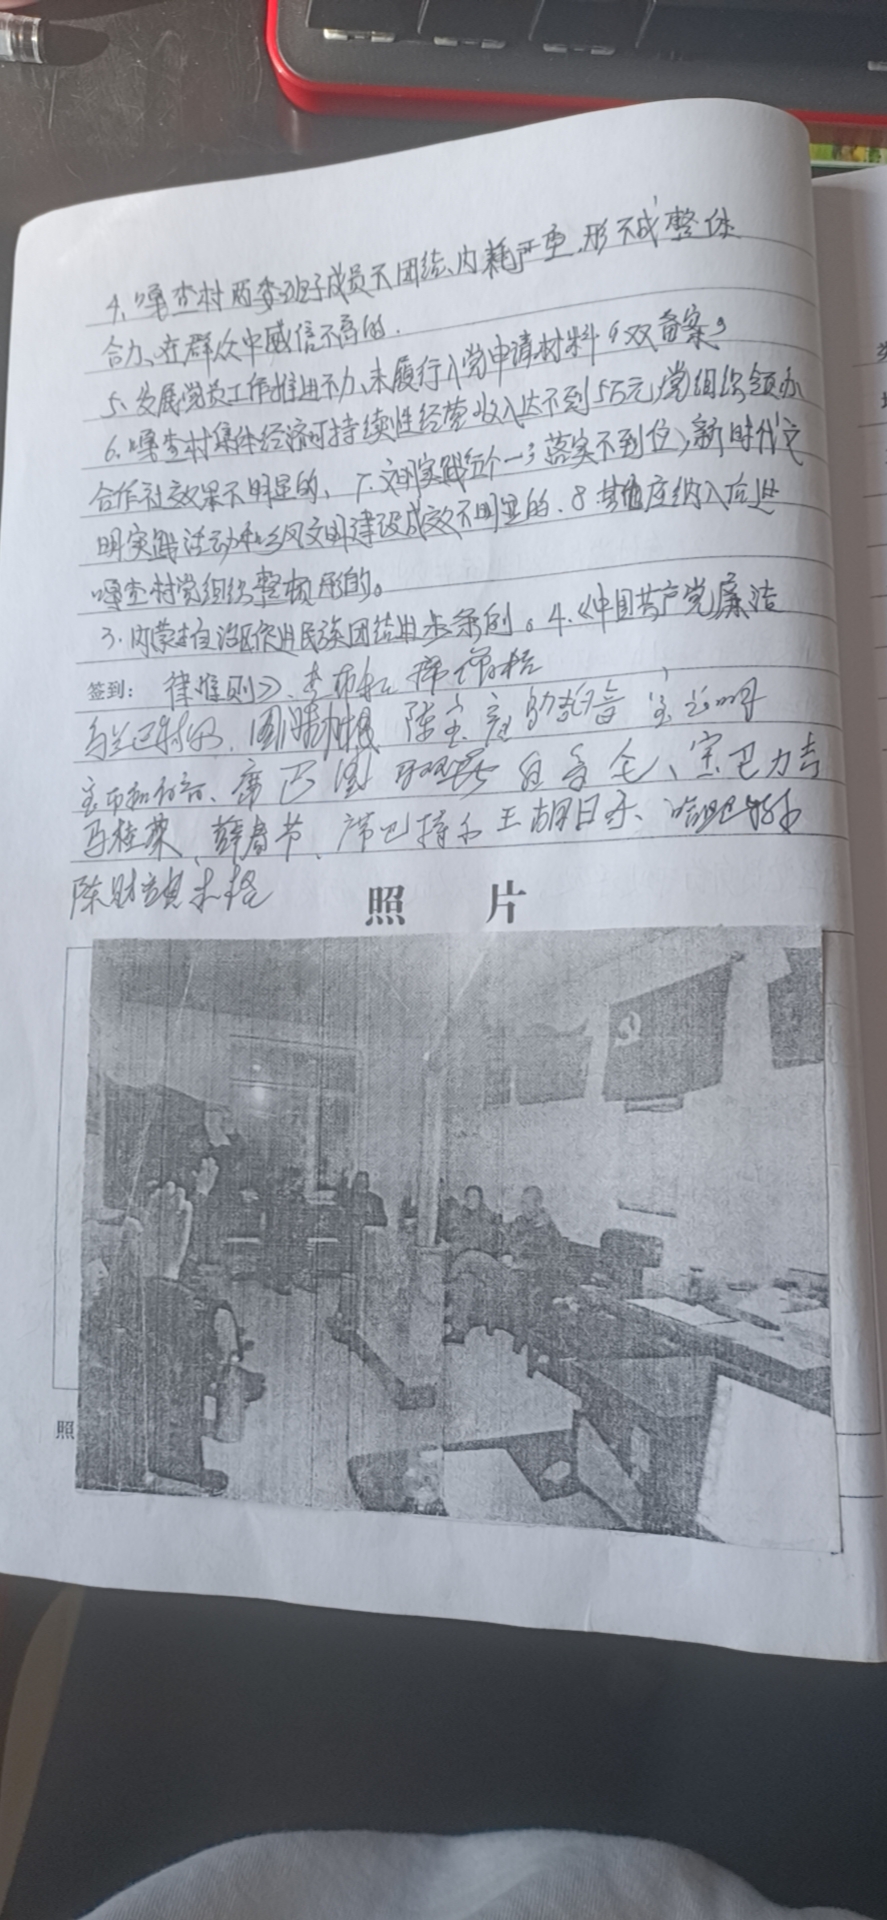 4、嘎查村两委班子成员不团结、内耗严重,形不成整体
合力、在群众中威信不高的.
5、发展党员工作推进不力、未履行入党申请材料“双备案”
6、嘎查村集体经济可持续性经营收入达不到5万元,党组织领办
合作社效果不明显的、7.文明实践 落实不到位,新时代文
明实践活动和乡风文明建设成效不明显的.8 其他应纳入后进
嘎查村党组织整顿 的。
3.内蒙古自治区促进民族团结进步条例。4.《中国共产党廉洁
签到: 律准则》、李布和
乌兰巴特尔、 陈宝
席巴图 宝巴力吉
马桂荣、薛春节、席巴特尔 王胡日 、哈日巴特尔
陈财
照 片
照